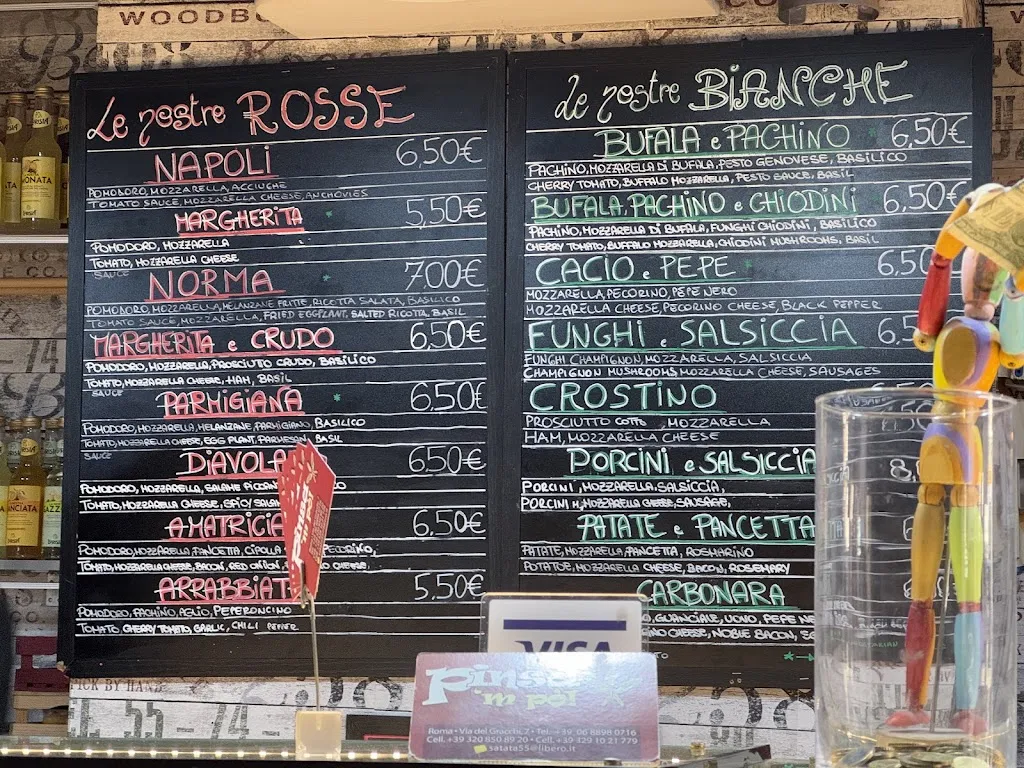 WOODBU
Le nostre ROSSE
NAPOLI 6,50€
POMODORO, MOZZARELLA, ACCIUGHE
TOMATO SAUCE, MOZZARELLA CHEESE, ANCHOVIES
MARGHERITA 5,50€
POMODORO, MOZZARELLA
TOMATO, MOZZARELLA CHEESE
SAUCE
NORMA 7.00€
POMODORO, MOZZARELLA, MELANZANE FRITTE, RICOTTA SALATA, BASILICO
TOMATO SAUCE, MOZZARELLA, FRIED EGGPLANT, SALTED RICOTTA, BASIL
MARGHERITA e CRUDO 6,50€
POMODORO, MOZZARELLA, PROSCIUTTO CRUDO, BASILICO
TOMATO, MOZZARELLA CHEESE, HAM, BASIL
SAUCE
PARMIGIANA 6,50€
POMODORO, MOZZARELLA, MELANZANE, PARMIGIANO, BASILICO
TOMATO, MOZZARELLA CHEESE, EGG PLANT, PARMESAN, BASIL
SAUCE
DIAVOLA 6,50€
POMODORO, MOZZARELLA, SALAME PICCAN
TOMATO, MOZZARELLA CHEESE, SPICY SALAM
AMATRICIA 6,50€
POMODORO, MOZZARELLA, PANCETTA, CIPOLLA PECORINO,
TOMATO, MOZZARELLA CHEESE, BACON, RED ONION, CHEESE
ARRABBIAT 5,50€
POMODORO, PACHINO, AGLIO, PEPERONCINO
TOMATO, CHERRY TOMATO, GARLIC, CHILI PEPPER
Le nostre BIANCHE
BUFALA e PACHINO 6,50€
PACHINO, MOZZARELLA DI BUFALA, PESTO GENOVESE, BASILICO
CHERRY TOMATO, BUFFALO MOZZARELLA, PESTO SAUCE, BASIL
BUFALA, PACHINO e CHIODINI 6,50€
PACHINO, MOZZARELLA DI BUFALA, FUNGHI CHIODINI, BASILICO
CHERRY TOMATO, BUFFALO MOZZARELLA, CHIODINI MUSHROOMS, BASIL
CACIO e PEPE 6,50
MOZZARELLA, PECORINO, PEPE NERO
MOZZARELLA CHEESE, PECORINO CHEESE, BLACK PEPPER
FUNGHI e SALSICCIA 6,5
FUNGHI CHAMPIGNON, MOZZARELLA, SALSICCIA
CHAMPIGNON MUSHROOMS, MOZZARELLA CHEESE, SAUSAGES
CROSTINO
PROSCIUTTO COTTO, MOZZARELLA
HAM, MOZZARELLA CHEESE
PORCINI e SALSICCIA 8,
PORCINI, MOZZARELLA, SALSICCIA,
PORCINI M, MOZZARELLA CHEESE, SAUSAGE,
PATATE e PANCETTA
PATATE, MOZZARELLA, PANCETTA, ROSMARINO
POTATOE, MOZZARELLA CHEESE, BACON, ROSEMARY
CARBONARA
GUANCIALE, UOVO, PEPE NE
INO CHEESE, NOBLE BACON, EG
VISA
Pinsa
'm pò!
Roma • Via dei Gracchi, 7 • Tel. +39 06 8898 0716
Cell. +39 320 850 89 20 • Cell. +39 329 10 21 779
satata55@libero.it